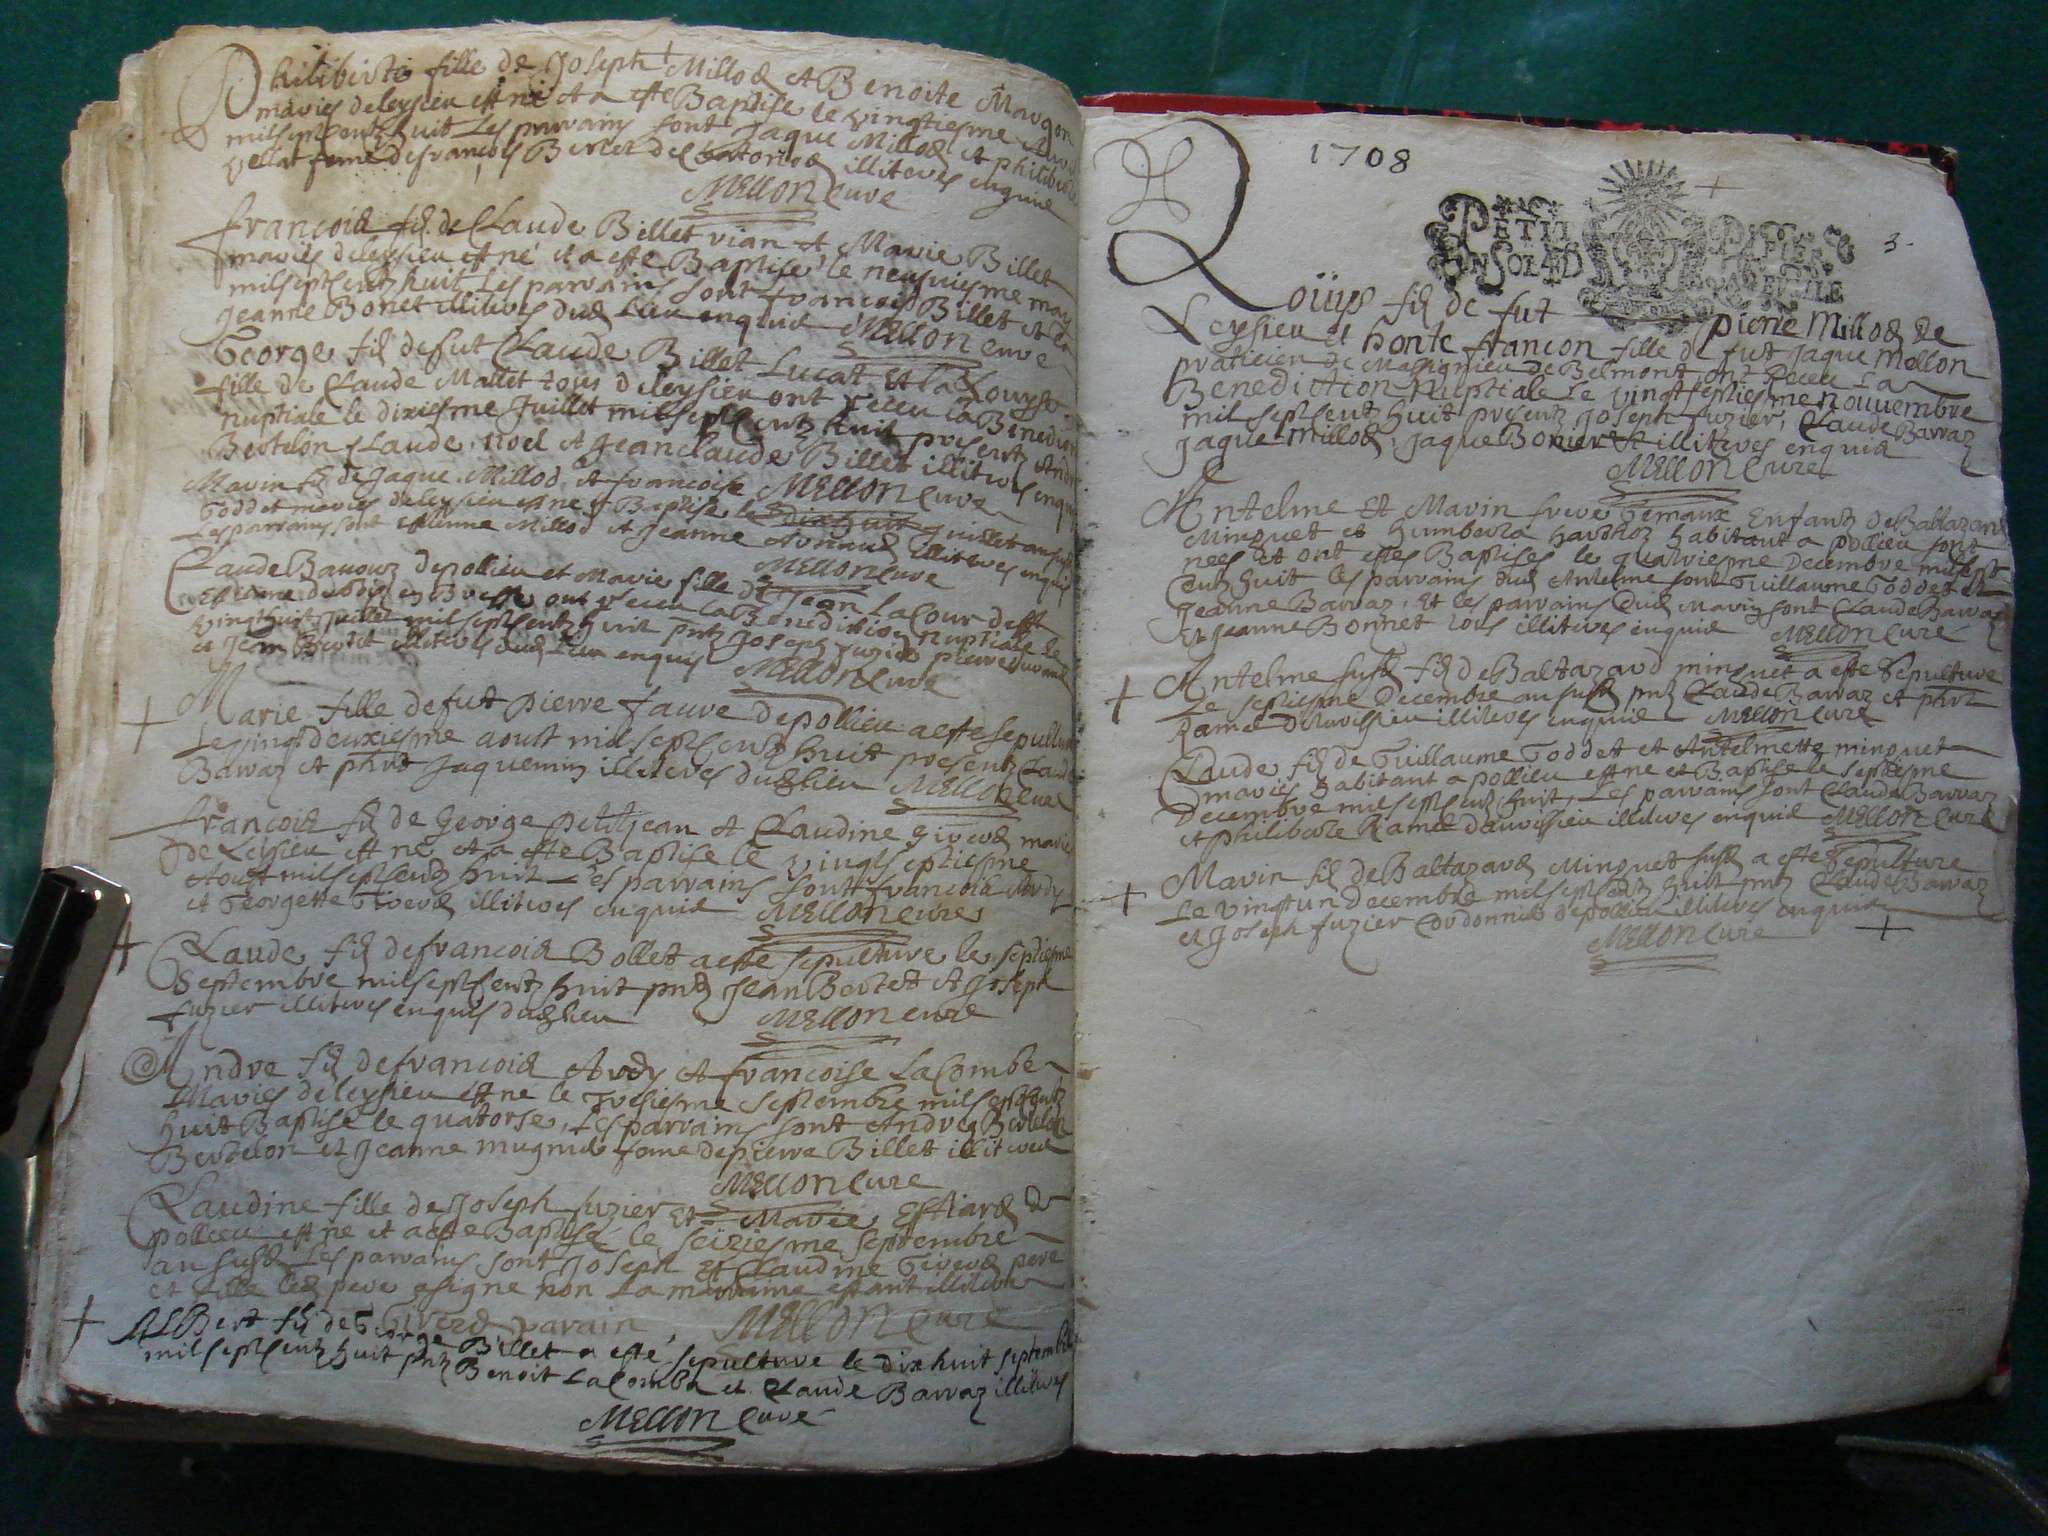 Philiberte fille de Joseph Millod et Benoite Maugon
mariés de leysieu est né et a esté Baptise le vingtiesme
mil sept centz huit Les parrains sont Jaque Millod et philiberte
vellat feme de francois Bertet illiteres enquis
MELLON Cure
francois fil de Claude Billet vian et Marie Billet
mariés de leysieu est né et a esté Baptise le neufviesme may
mil sept centz huit Les parrains sont francois Billet et la
Jeanne Bonet illiteres dud Lieu enquid MELLON cure
George fil de fut Claude Billet Lucat et la Louyse
fille de Claude Mallet tous de leysieu ont receu la Benediction
nuptiale le dixiesme Juillet mil sept centz huit presentz André
Bertelon Claude noel et Jean claude Billet illiteres enquis
MELLON Cure
Marin fil de Jaque Millod et francoise
Goddet mariés de leysieu est né et Baptise le dix huit Juillet an susd
Les parrains sont estienne Millod et Jeanne illiteres enquis
MELLON Cure
Claude Barraz de pollieu et Marie fille de Jean LaCour de st
Estienne du bois en Bresse ont receu la Benediction nuptiale le
vingt huit Juillet mil sept centz huit pntz Joseph fuzier pierre durand
et Jean Bertet illiteres dud Lieu enquis MELLON Cure
Marie fille de fut pierre faure de pollieu a este sepulture
Le vingt deuxiesme aoust mil sept centz huit presentz Claude
Barraz et phrt Jaquemin illiteres dud lieu MELLON Cure
francois fil de George petitjean et Claudine Giverd mariés
de Leysieu est né et a esté Baptise le vingt septiesme
Aoust mil sept centz huit Les parrains sont francois Ardy
et Georgette Giverd illiteres enquid MELLON cure
Claude fil de francois Bollet a esté sepulture le septiesme
Septembre mil sept centz huit pntz Jean Bertet et Joseph
fuzier illiteres enquis dud lieu MELLON cure
Andre fil de francois Ardy et francoise LaCombe
Mariés de leysieu est né le tresiesme septembre mil sept centz
huit Baptise le quatorse, Les parrains sont Andre Bertelon
Bertelon et Jeanne mugnid feme de pierre Billet illiteres
MELLON Cure
Claudine fille de Joseph fuzier Et Marie Estiard de
pollieu est né et a esté Baptisé le seiziesme septembre
an susd Les parrains sont Joseph et Claudine Giverd pere
et fille led pere a signe non La marraine estant illitere
Giverd parain MELLON Cure
Albert fil de George Billet a esté sepulture le dix huit septembre
mil sept centz huit pntz Benoit LaCombe et Claude Barraz illiteres
MELLON Cure
1708
3.
PETIT PAPIER
UN SOL 4 D LA FEUILLE
Loüys fil de fut pierre Millod de
Leysieu et honte francon fille de fut Jaque Mellon
praticien de Massignieu de Belmont ont receu La
Benediction Nuptiale Le vingt septiesme novvembre
mil sept centz huit presentz Joseph fuzier, Claude Barraz
Jaque Millod, Jaque Bonier et illiteres enquid
MELLON Cure
Antelme Et Marin frere Gemaux Enfantz de Baltazard
Minguet et humberta harthoz habitant a pollieu sont
nees et ont estes Baptises le quatriesme Decembre mil sept
centz huit les parrains dud Antelme sont Guillaume Goddet et
Jeanne Barraz, Et les parrains dud Marin sont Claude Barraz
Et Jeanne Bonnet tous illiteres enquid MELLON Cure
Antelme susd fil de Baltazard minguet a esté Sepulture
Le septiesme Decembre an susd pntz Claude Barraz et phrt
Ramel illiteres enquid MELLON Cure
Claude fil de Guillaume Goddet et Antelmette minguet
mariés habitant a pollieu est né et Baptise le septiesme
Decembre mil sept centz huit, Les parrains sont Claude Barraz
et philiberte Ramel illiteres enquid MELLON Cure
Marin fil de Baltazard Minguet susd a este Sepulture
Le vingt un Decembre mil sept centz huit pntz Claude Barraz
et Joseph fuzier Cordonnier de pollieu illiteres enquid
MELLON Cure